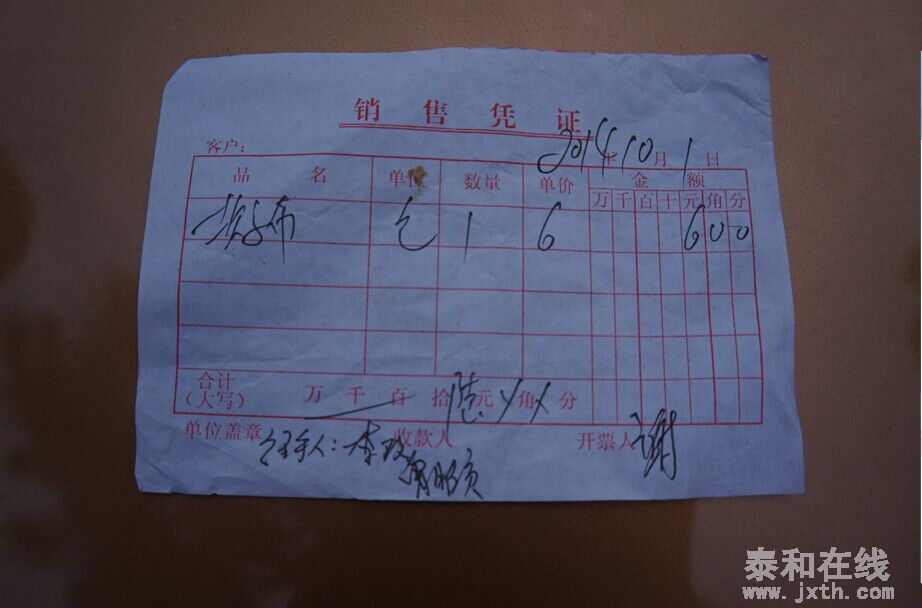 销售凭证
客户： 2014年10月1日
品名 单价 数量 单价 金额
万 千 百 十 元 角 分
1 6 6 0 0
合计（大写） 万 千 百 拾 陆元 角 分
单位盖章 收款人 开票人 谢
经手人：李
泰和在线
www.jxth.com